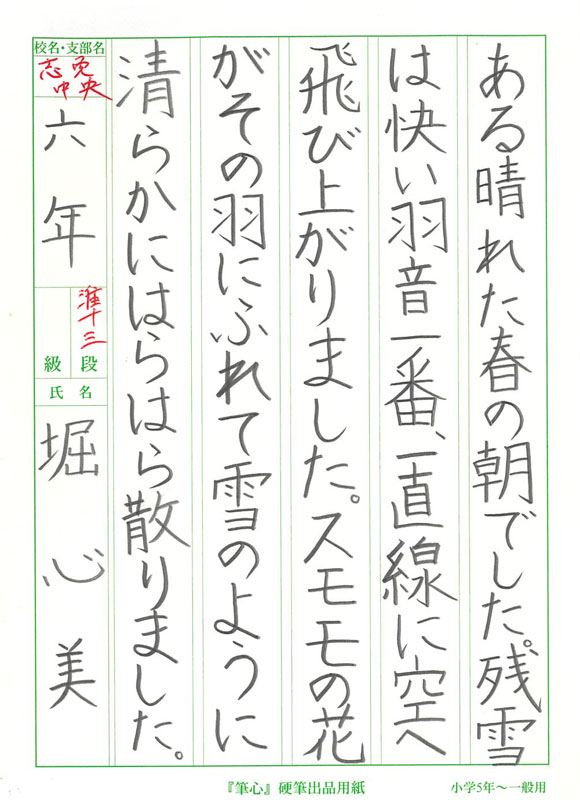 ある晴れた春の朝でした。残雪
は快い羽音一番、一直線に空へ
飛び上がりました。スモモの花
がその羽にふれて雪のように
清らかにはらはら散りました。
校名・支部名
志免
中央
六年
準十三
級 段
氏 名
堀 心美
『筆心』硬筆出品用紙
小学5年〜一般用